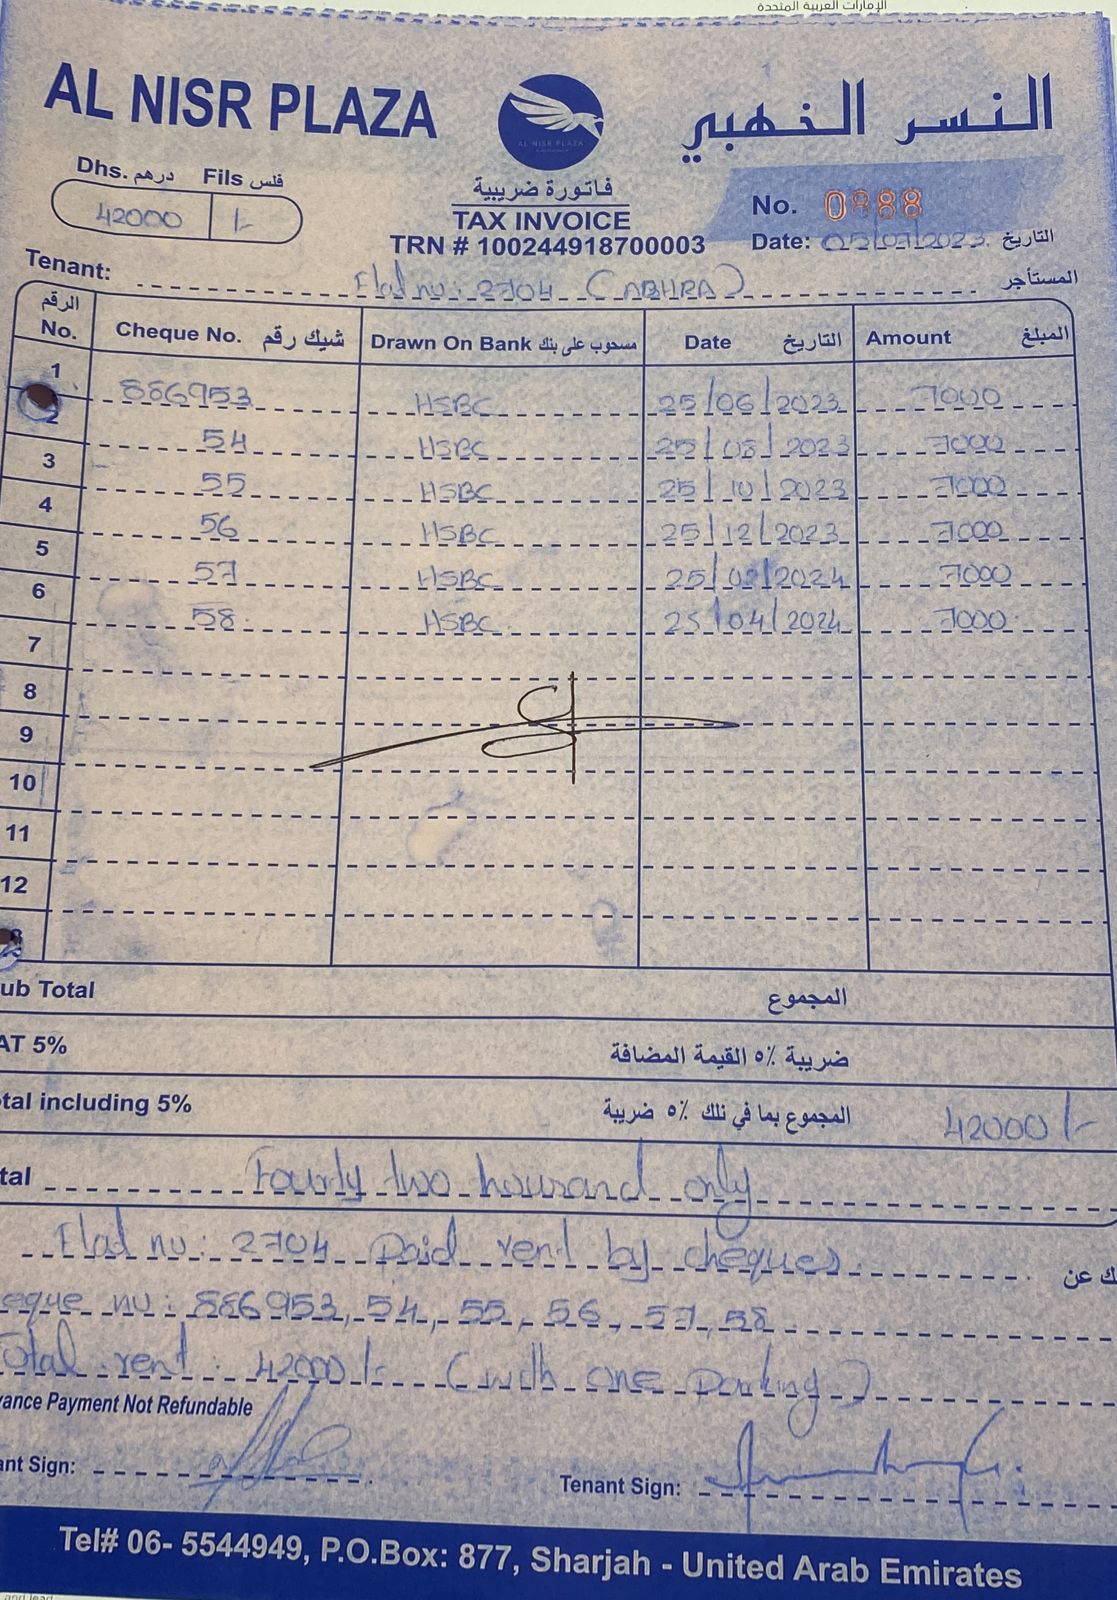 الإمارات العربية المتحدة
AL NISR PLAZA
AL NISR PLAZA
النسر الذهبي
Dhs. درهم Fils فلس
42000 /-
فاتورة ضريبية
TAX INVOICE
TRN # 100244918700003
No. 0888
Date: 05/07/2023 التاريخ
Tenant: Flat no: 2704 (ABHRA) المستأجر
الرقم No. Cheque No. شيك رقم Drawn On Bank مسحوب على بنك Date التاريخ Amount المبلغ
1 886953 HSBC 25/06/2023 7000
2 54 HSBC 25/08/2023 7000
3 55 HSBC 25/10/2023 7000
4 56 HSBC 25/12/2023 7000
5 57 HSBC 25/02/2024 7000
6 58 HSBC 25/04/2024 7000
7
8
9
10
11
12
ub Total المجموع
AT 5% ضريبة ٥٪ القيمة المضافة
tal including 5% المجموع بما في نلك ٥٪ ضريبة 42000/-
tal Fourty two housand only
Flat no: 2704 Paid rent by cheques ك عن
eque no: 886953, 54, 55, 56, 57, 58
Total rent: 42000/- (with one Parking)
vance Payment Not Refundable
ant Sign: Tenant Sign:
Tel# 06- 5544949, P.O.Box: 877, Sharjah - United Arab Emirates
and lead